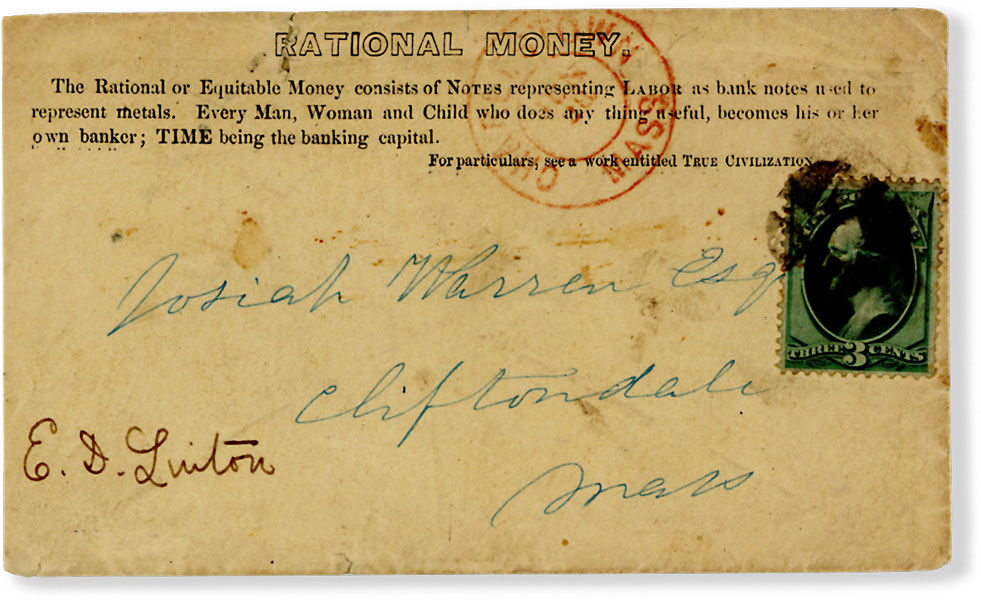 RATIONAL MONEY.
The Rational or Equitable Money consists of NOTES representing LABOR as bank notes used to
represent metals. Every Man, Woman and Child who does any thing useful, becomes his or her
own banker; TIME being the banking capital.
For particulars, see a work entitled TRUE CIVILIZATION
MASS
Josiah Warren Esq
Cliftondale
Mass
E. D. Linton
THREE 3 CENTS